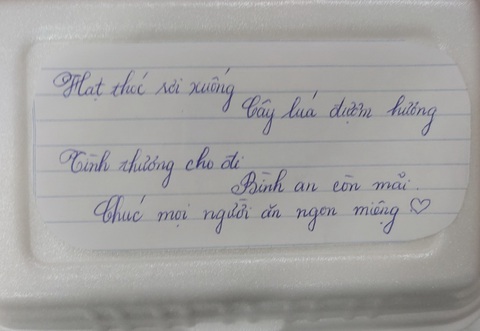 Hạt thóc rơi xuống
Cây luá đượm hương
Tình thương cho đi
Bình an còn mãi.
Chúc mọi người ăn ngon miệng ♡